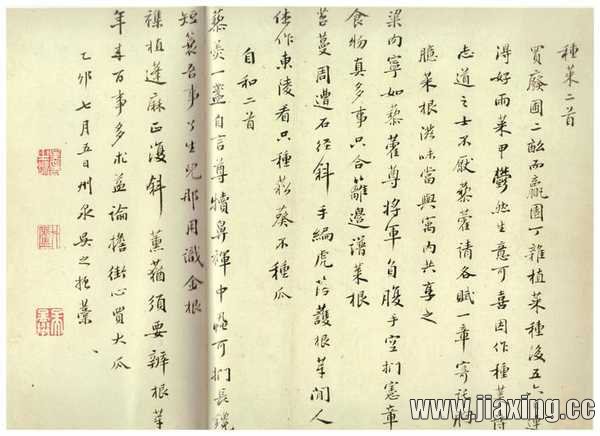 種菜二首
買廢圃二畝而贏園丁雜植菜種後五六日連
得好雨菜甲鬱然生意可喜因作種菜詩
志道之士不厭藜藿請各賦一章寄託胸
臆菜根滋味當與寓內共享之
梁肉寧如藜藿尊將軍負腹手空捫憲章
食物真多事只合籬邊譜菜根
苔蔓周遭石徑斜手編虎落護根芽閒人
休作東陵看只種菘葵不種瓜
自和二首
藜羹一盂自言尊犢鼻褌中 可捫長鑱
短蓑吾事了生兒那用識金根
襍植蓬麻正復斜薰蕕須要辨根芽
年來百事多求益論擔街心買大瓜
乙卯七月五日州泉吳之振藁
www.jiaxing.cc